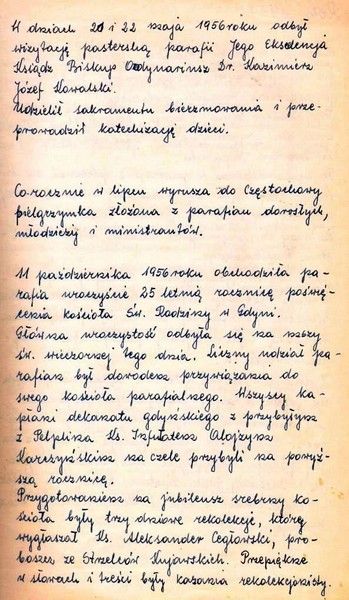 W dniach 21 i 22 maja 1956 roku odbył
wizytację pasterską parafii Jego Ekscelencja
Ksiądz Biskup Ordynariusz Dr. Kazimierz
Józef Kowalski.
Udzielił sakramentu bierzmowania i prze-
prowadził katechizację dzieci.
Co rocznie w lipcu wyrusza do Częstochowy
pielgrzymka złożona z parafian dorosłych,
młodzieży i ministrantów.
11 października 1956 roku obchodziła pa-
rafia uroczyśnie 25 letnią rocznicę poświę-
cenia kościoła Św. Rodziny w Gdyni.
Główna uroczystość odbyła się na mszy
św. wieczornej tego dnia. Liczny udział pa-
rafian był dowodem przywiązania do
swego kościoła parafialnego. Wszyscy ka-
płani dekanatu gdyńskiego z przybyłym
z Pelplina Ks. Infułatem Alojzym
Karczyńskim na czele przybyli na powyż-
szą rocznicę.
Przygotowaniem na jubileusz srebrny ko-
ścioła były trzy dniowe rekolekcje, które
wygłaszał Ks. Aleksander Cegłowski, pro-
boszcz ze Strzelców Kujawskich. Przepiękne
w słowach i treści były kazania rekolekcjonisty.